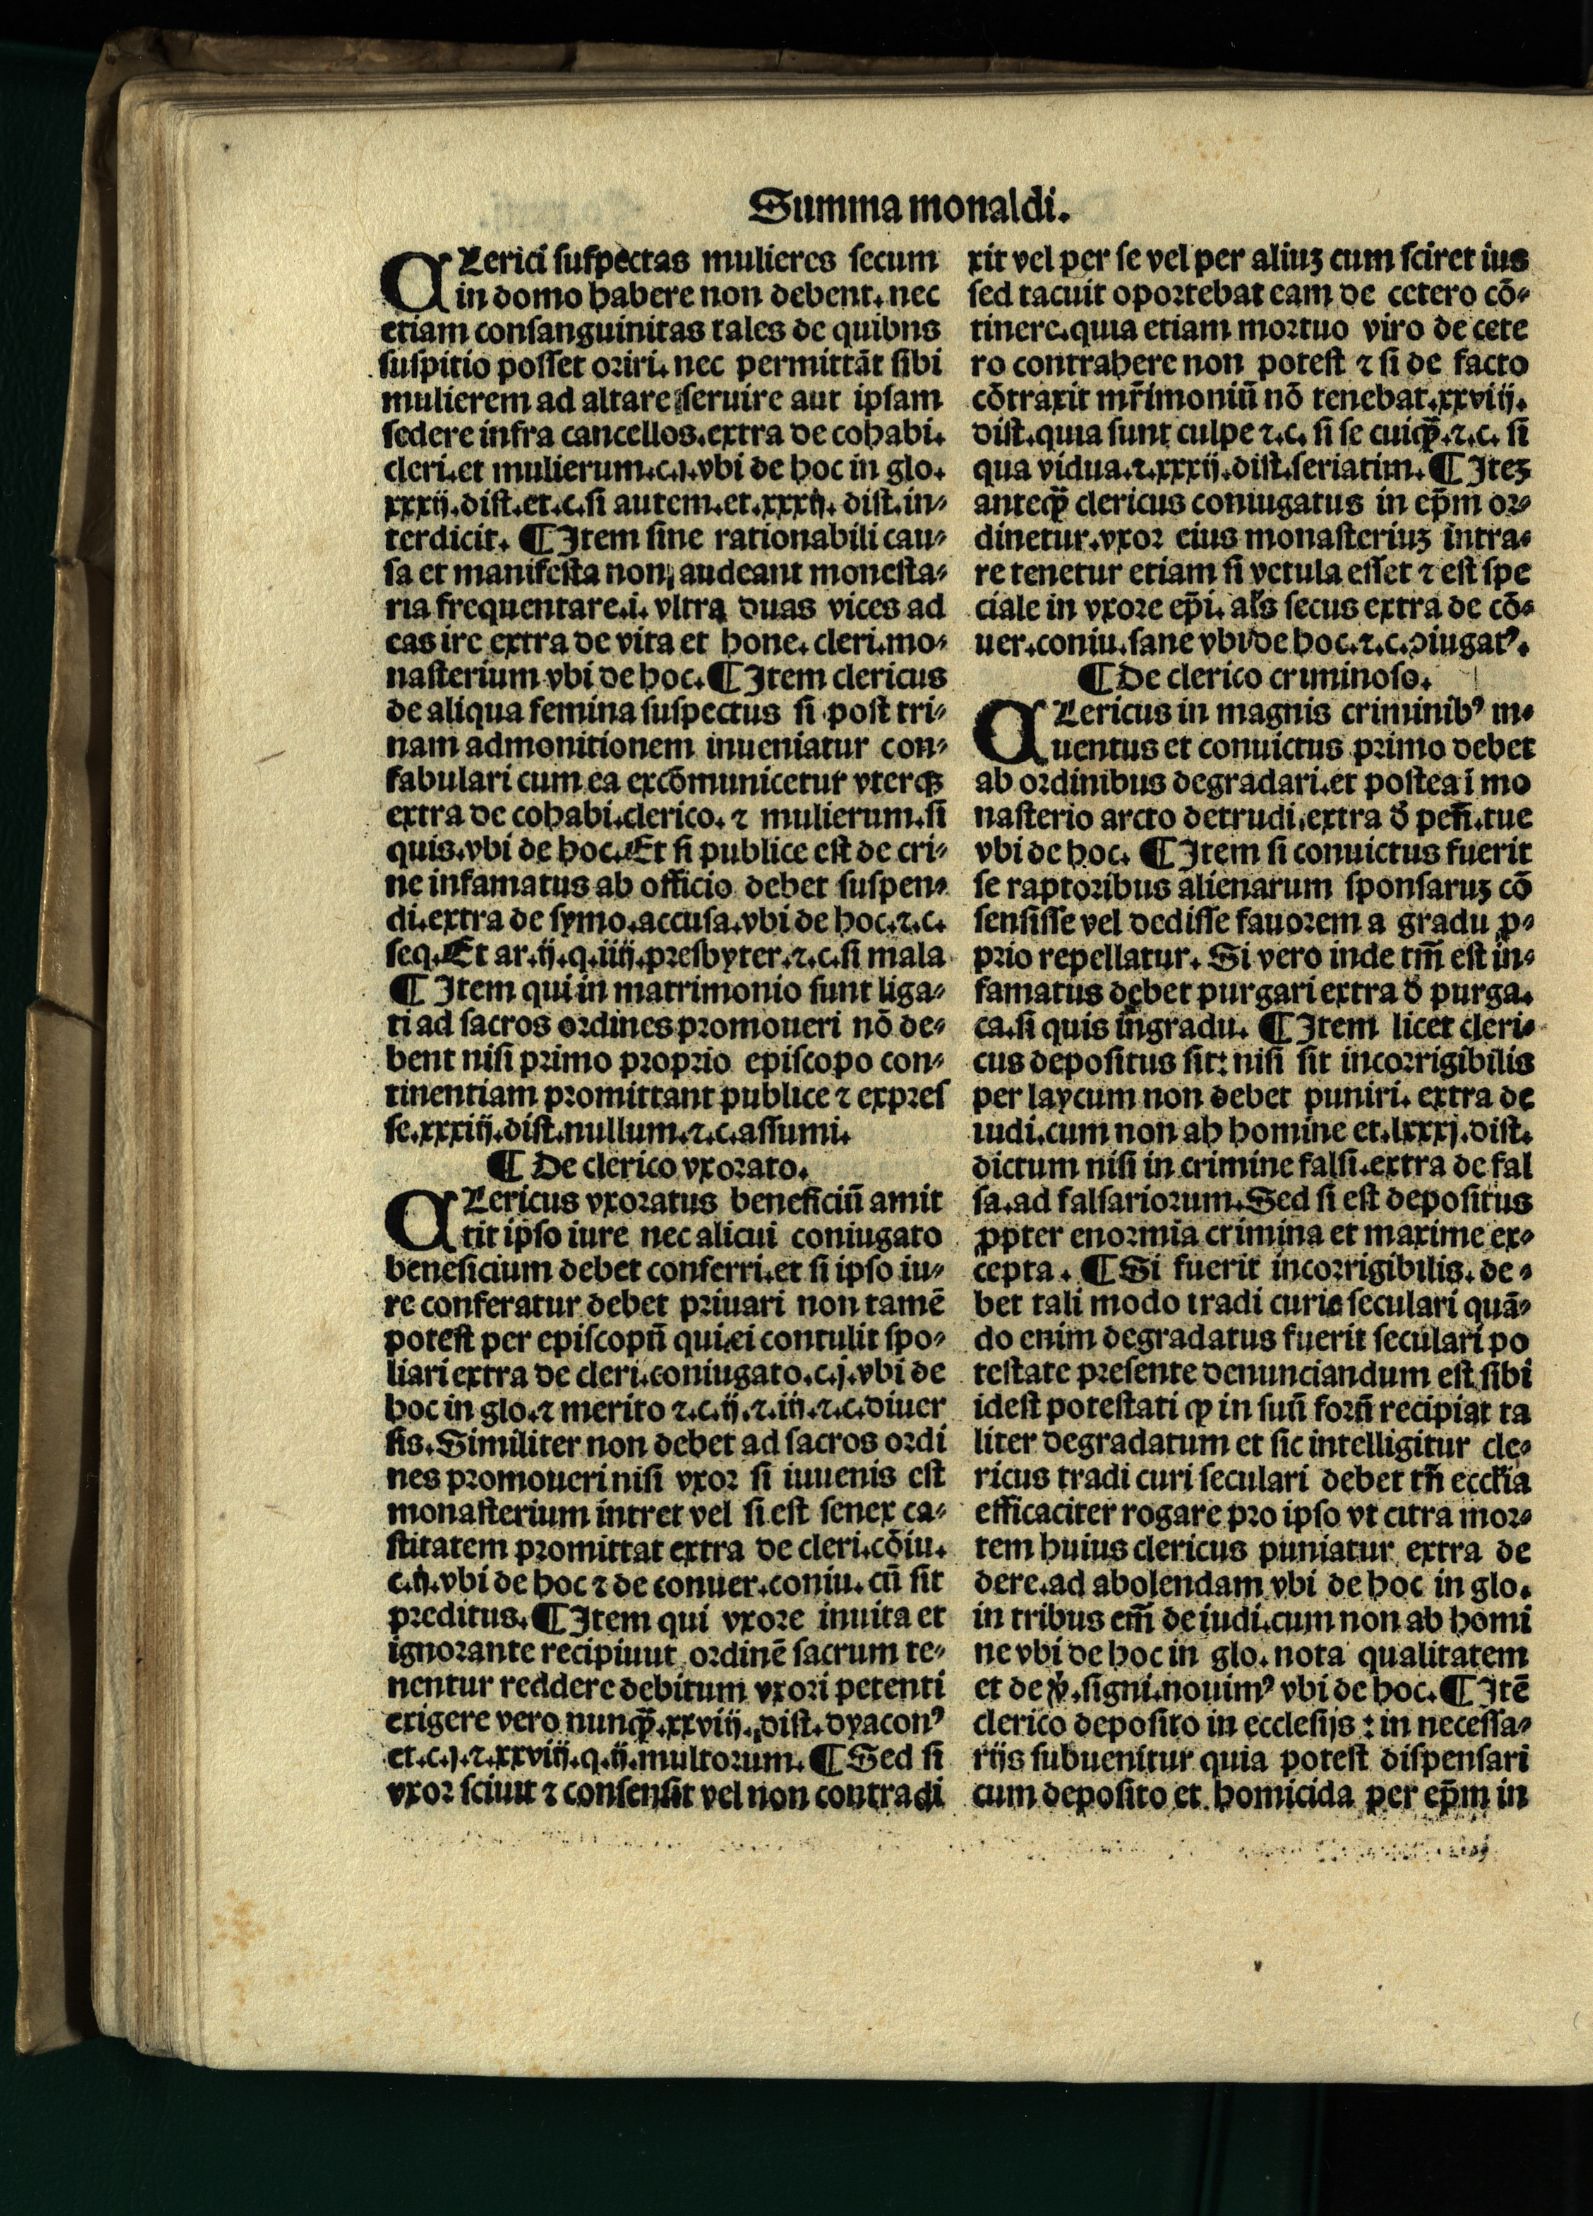 Summa monaldi.
CLerici suspectas mulieres secum
in domo habere non debent. nec
etiam consanguinitas tales de quibns
suspitio posset oriri. nec permittāt sibi
mulierem ad altare seruire aut ipsam
sedere infra cancellos. extra de cohabi.
cleri. et mulierum. c. i. vbi de hoc in glo.
xxxij. dist. et. c. si autem. et. xxxij. dist. in-
terdicit. ¶ Item sine rationabili cau-
sa et manifesta non audeant monesta-
ria frequentare. i. vltra duas vices ad
eas ire extra de vita et hone. cleri. mo-
nasterium vbi de hoc. ¶ Item clericus
de aliqua femina suspectus si post tri-
nam admonitionem inueniatur con-
fabulari cum ea excōmunicetur vterqꝫ
extra de cohabi. clerico. ⁊ mulierum. si
quis. vbi de hoc. Et si publice est de cri-
ne infamatus ab officio debet suspen-
di. extra de symo. accusa. vbi de hoc. ⁊. c.
seq. Et ar. ij. q. iiij. presbyter. ⁊. c. si mala
¶ Item qui in matrimonio sunt liga-
ti ad sacros ordines promoueri nō de-
bent nisi primo proprio episcopo con-
tinentiam promittant publice ⁊ expres
se. xxxiij. dist. nullum. ⁊. c. assumi.
¶ De clerico vxorato.
CLericus vxoratus beneficiū amit
tit ipso iure nec alicui coniugato
beneficium debet conferri. et si ipso iu-
re conferatur debet priuari non tamē
potest per episcopū qui ei contulit spo-
liari extra de cleri. coniugato. c. j. vbi de
hoc in glo. ⁊ merito ⁊. c. ij. ⁊. iij. ⁊. c. diuer
sis. Similiter non debet ad sacros ordi
nes promoueri nisi vxor si iuuenis est
monasterium intret vel si est senex ca-
stitatem promittat extra de cleri. cōiu.
c. ij. vbi de hoc ⁊ de conuer. coniu. cū sit
preditus. ¶ Item qui vxore inuita et
ignorante recipiuut ordinē sacrum te-
nentur reddere debitum vxori petenti
exigere vero nunqꝫ̄. xxviij. dist. dyaconꝰ
et. c. j. ⁊. xxviij. q. ij. multorum. ¶ Sed si
vxor sciuit ⁊ consensit vel non contradi
xit vel per se vel per aliuꝫ cum sciret ius
sed tacuit oportebat eam de cetero cō-
tinere. quia etiam mortuo viro de cete
ro contrahere non potest ⁊ si de facto
cōtraxit mr̄imoniū nō tenebat. xxviij.
dist. quia sunt culpe ⁊. c. si se cuiqꝫ̄. ⁊. c. si
qua vidua. ⁊. xxxij. dist. seriatim. ¶ Iteꝫ
anteqꝫ̄ clericus coniugatus in ep̄m or-
dinetur. vxor eius monasteriuꝫ intra-
re tenetur etiam si vetula esset ⁊ est spe
ciale in vxore ep̄i. al's secus extra de cō-
uer. coniu. sane vbi de hoc. ⁊. c. ꝯiugatꝰ.
¶ De clerico criminoso.
CLericus in magnis criminibꝰ in-
uentus et conuictus primo debet
ab ordinibus degradari. et postea ī mo
nasterio arcto detrudi. extra đ peñ. tue
vbi de hoc. ¶ Item si conuictus fuerit
se raptoribus alienarum sponsaruꝫ cō
sensisse vel dedisse fauorem a gradu ꝓ-
prio repellatur. Si vero inde tm̄ est in-
famatus debet purgari extra đ purga.
ca. si quis ingradu. ¶ Item licet cleri-
cus depositus sit: nisi sit incorrigibilis
per laycum non debet puniri. extra de
iudi. cum non ab homine et. lxxxj. dist.
dictum nisi in crimine falsi. extra de fal
sa. ad falsariorum. Sed si est depositus
ꝓpter enormia crimina et maxime ex-
cepta. ¶ Si fuerit incorrigibilis. de-
bet tali modo tradi curie seculari quā-
do enim degradatus fuerit seculari po
testate presente denunciandum est sibi
idest potestati ꝙ in suū forū recipiat ta
liter degradatum et sic intelligitur cle-
ricus tradi curi seculari debet tñ eccl'ia
efficaciter rogare pro ipso vt citra mor-
tem huius clericus puniatur extra de
dere. ad abolendam vbi de hoc in glo.
in tribus em̄ de iudi. cum non ab homi
ne vbi de hoc in glo. nota qualitatem
et de ꝟ. signi. nouimꝰ vbi de hoc. ¶ Itē
clerico deposito in ecclesijs: in necessa-
rijs subuenitur quia potest dispensari
cum deposito et homicida per ep̄m in